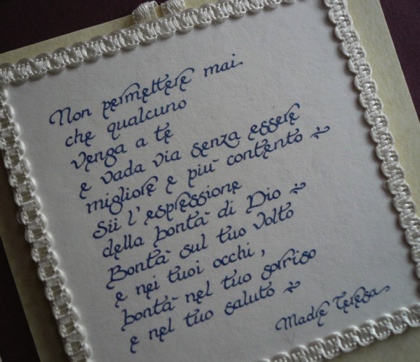 Non permettere mai
che qualcuno
venga a te
e vada via senza essere
migliore e più contento
Sii l'espressione
della bontà di Dio
Bontà sul tuo volto
e nei tuoi occhi,
bontà nel tuo sorriso
e nel tuo saluto
Madre Teresa